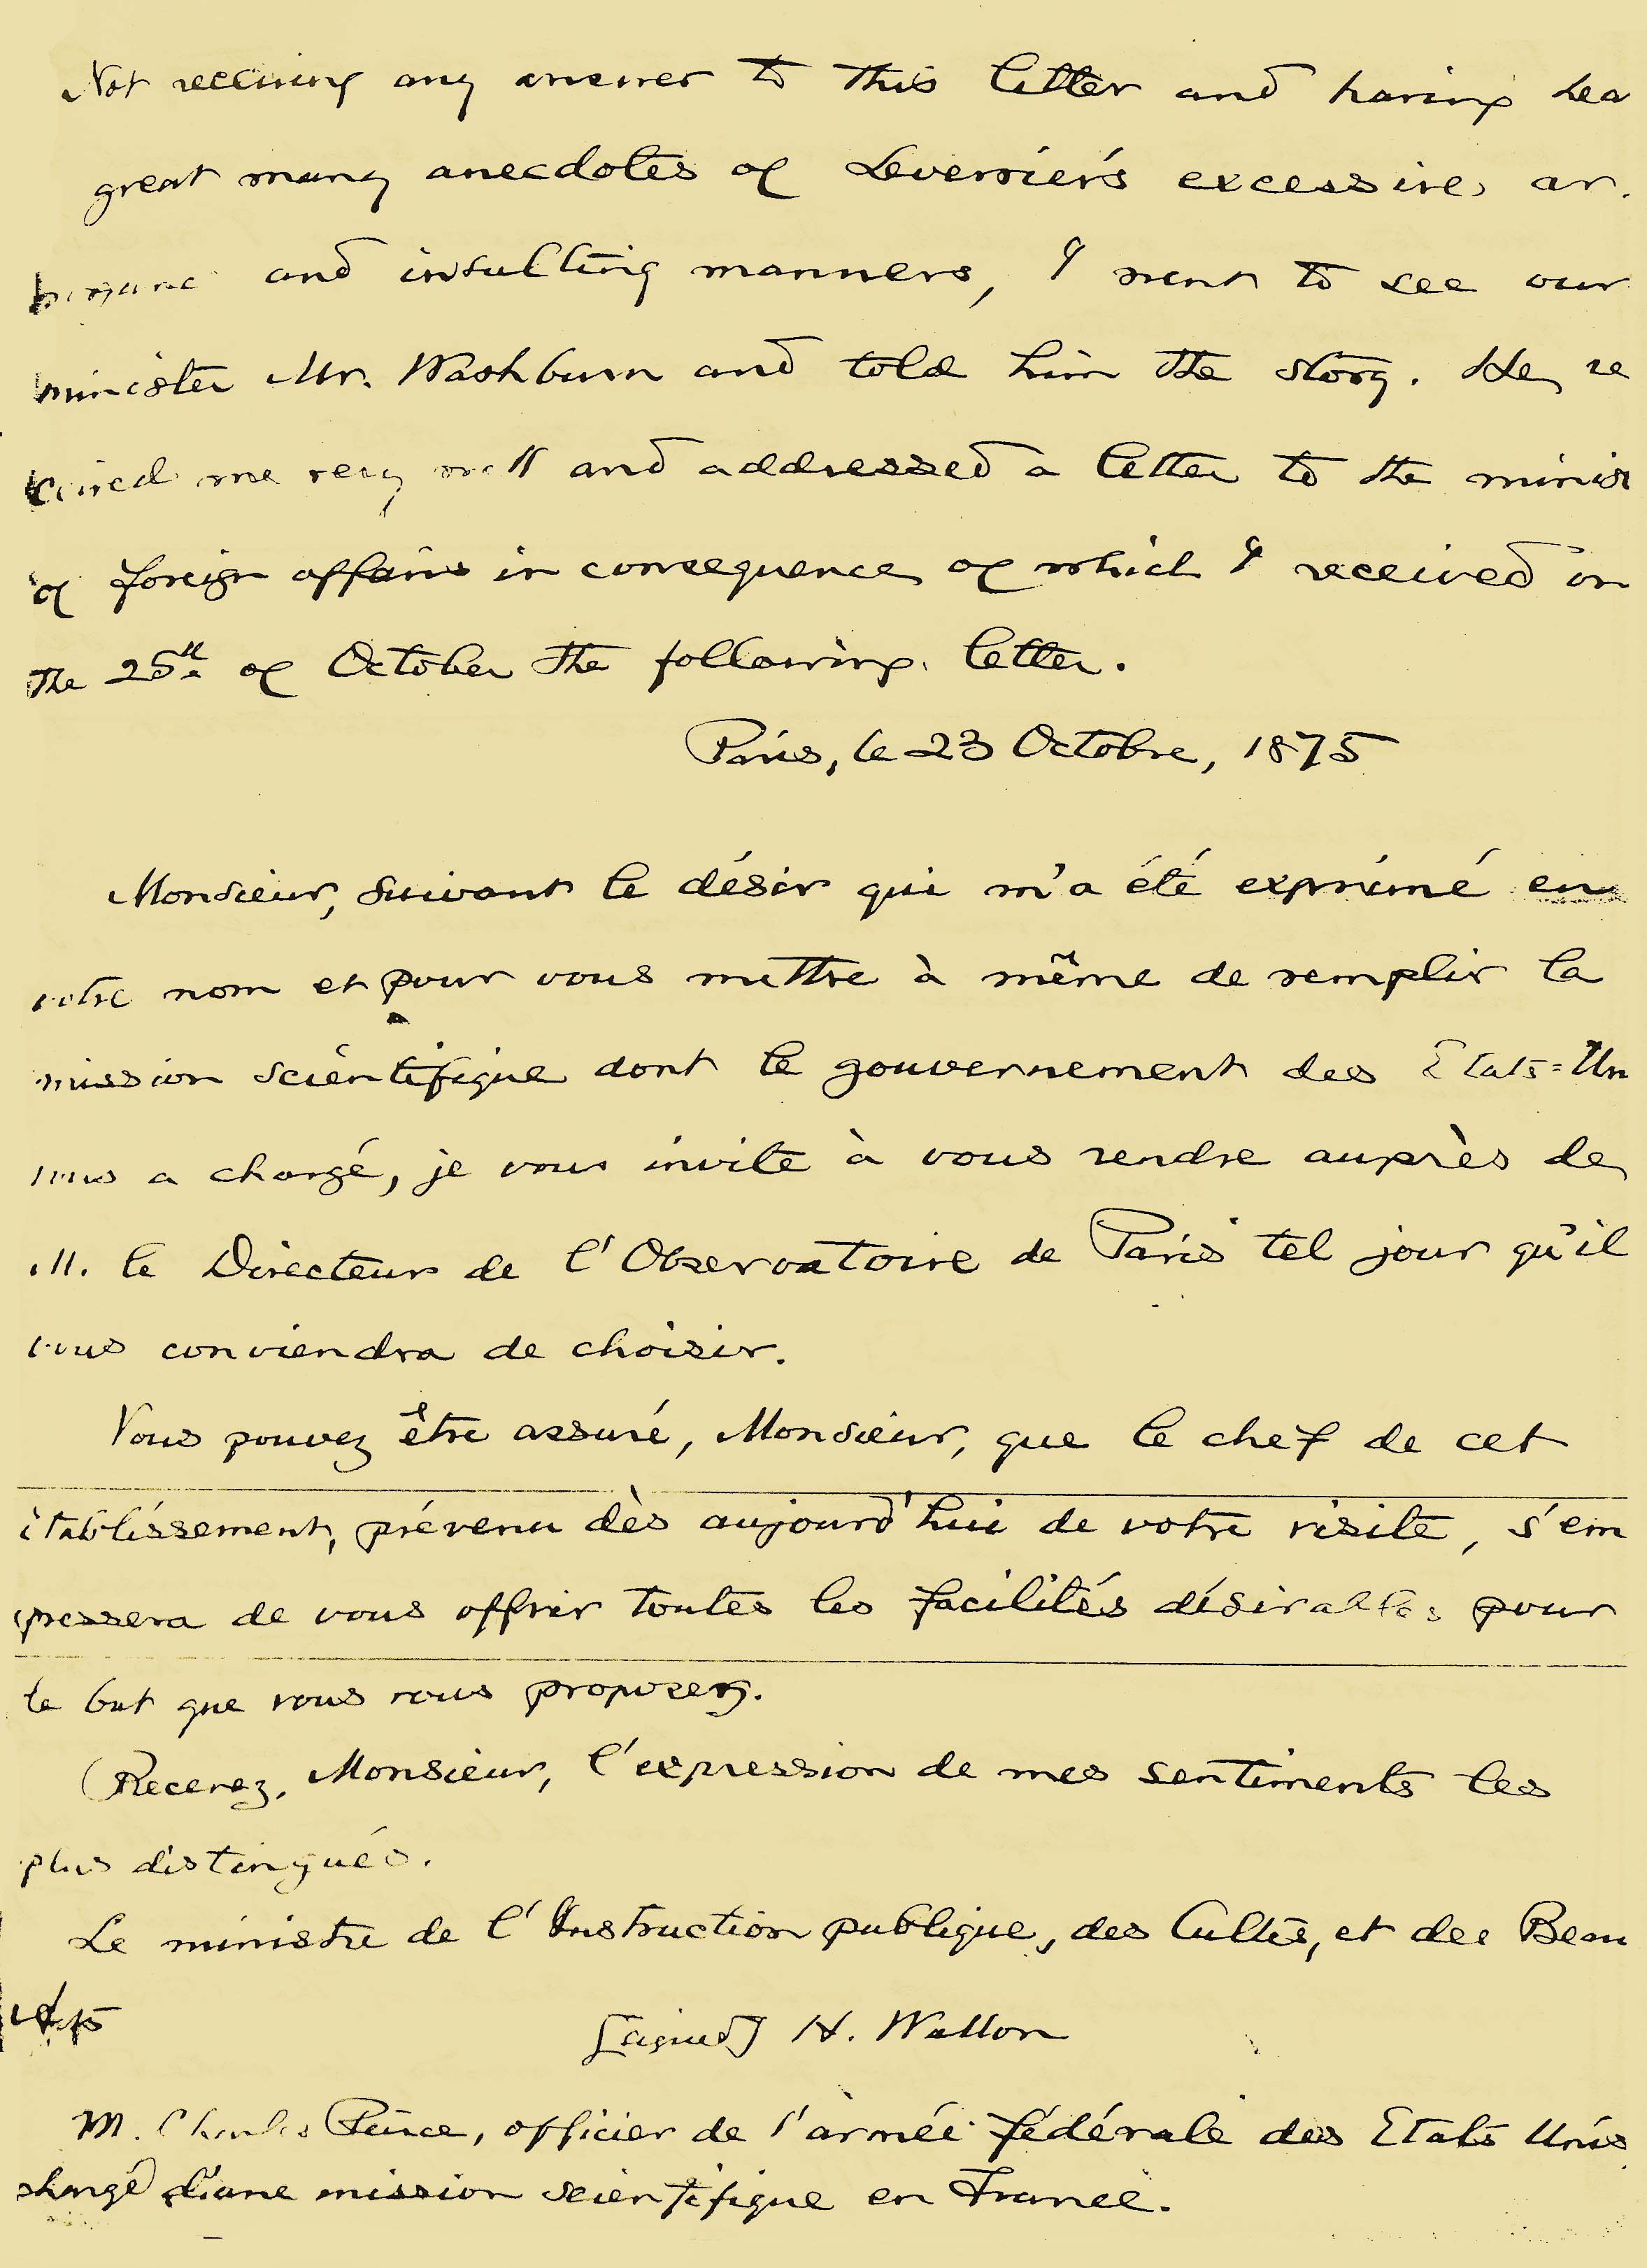 Not receiving any answer to this letter and having hea
great many anecdotes of Leverrier's excessive ar.
and insulting manners, I went to see our
minister Mr. Washburn and told him the story. He re
ceived me very well and addressed a letter to the minis
of foreign affairs in consequence of which I received on
the 25th of October the following letter.
Paris, le 23 Octobre, 1875
Monsieur, Suivant le désir qui m'a été exprimé en
votre nom et pour vous mettre à même de remplir la
mission scientifique dont le gouvernement des Etats=Un
vous a chargé, je vous invite à vous rendre auprès de
M. le Directeur de l'Observatoire de Paris tel jour qu'il
vous conviendra de choisir.
Vous pouvez être assuré, Monsieur, que le chef de cet
établissement, prévenu dès aujourd'hui de votre visite, s'em
pressera de vous offrir toutes les facilités désirables pour
le but que vous vous proposez.
Recevez, Monsieur, l'expression de mes sentiments les
plus distingués.
Le ministre de l'Instruction publique, des Cultes, et des Beau
Arts
[signed] H. Wallon
M. Charles Peirce, officier de l'armée fédérale des Etats Unis
chargé d'une mission scientifique en France.